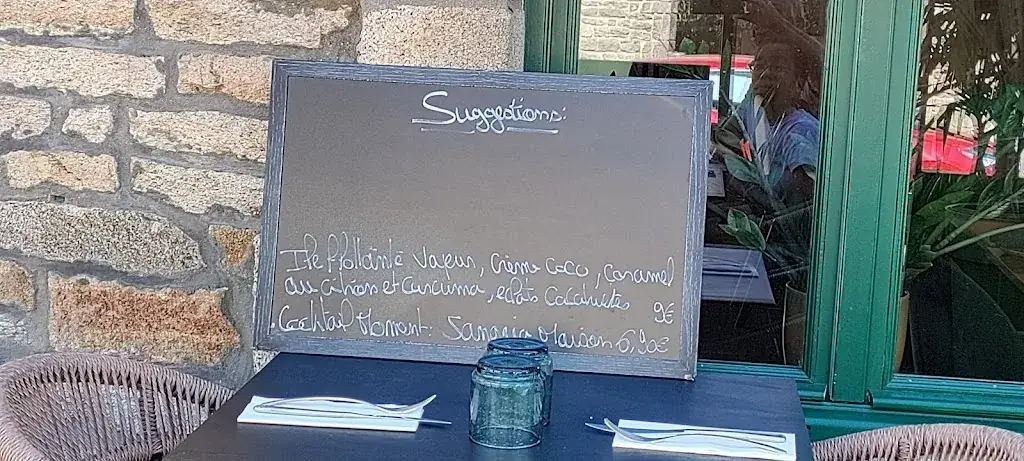 Suggestions:
Ile flottante Vapeur, Crème Coco, Caramel
au citron et Curcuma, eclats Cacahuètes 9€
Cocktail Moment: Sangria Maison 6,90€